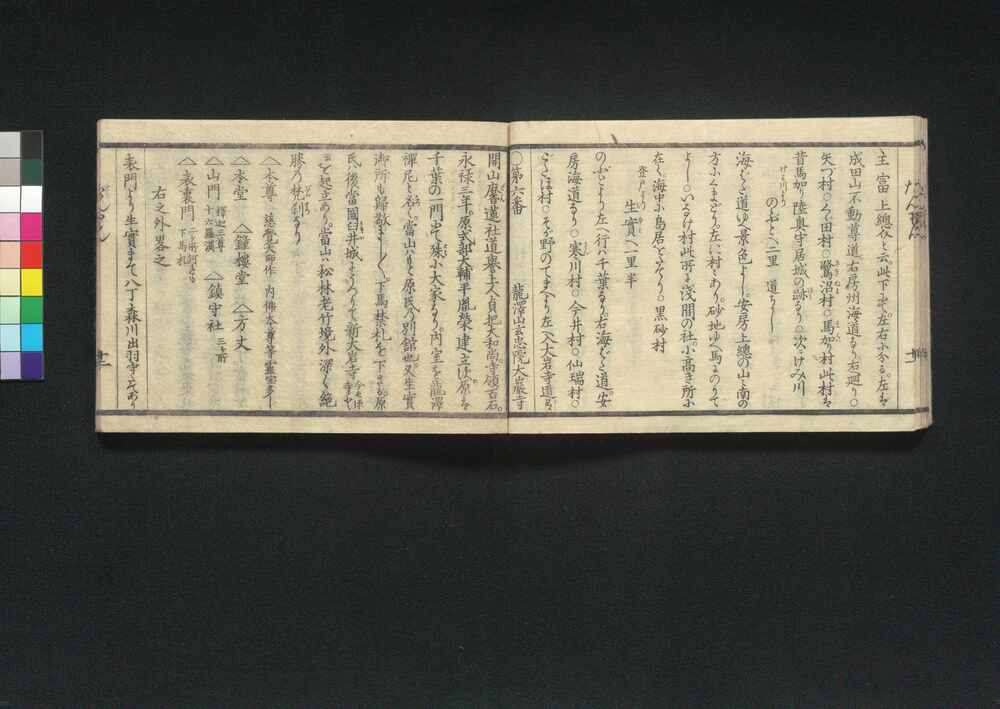 主富上總介と云此下にて左右に分る左は
成田山不動尊道右房州海道なり右廻り○
矢つ村○久々田村○鷺沼村○馬加り村此村は
昔馬加り陸奥守居城の跡なり○次にけみ川
のぶとへ二里 道よし
海ばた道ゆへ景色よし安房上總の山々南の
方にくまどり左に村々あり砂地ゆへ馬よのりて
よし○いなげ村此所に浅間の社小高き所に
在て海中に鳥居をそなへり○黒砂村
登戸
生實へ一里半
のぶとより左へ行ハ千葉なり右海ばた道ハ安
房海道なり○寒川村○今井村○仙瑞村○
村○野のてまへより左へ入大岩寺道なり
○第六番 龍澤山玄忠院大巖寺
開山麿蓮社道譽上人貞把大和尚寺領百石
永禄三年原式部大輔平胤榮建立す原は
千葉の一門にて殊に大家なり内室を龍澤
禪尼と号し當山ハもと原氏の別館也又生實
御所も歸敬まし〱下馬禁札を下さる原
氏後當國臼井城をうつりて新大岩寺
を起立あり當山ハ松林老竹境外深く絶
勝の梵刹なり
○本尊 慈覺大師作 内佛本尊等靈宝多し
○本堂 ○鐘樓堂 ○方丈
○山門 釋迦三尊 十六羅漢 ○鎮守社 三ヶ所
○表裏門 二ヶ所何れも下馬札
右之外畧之
表門より生實まて八丁森川出羽守